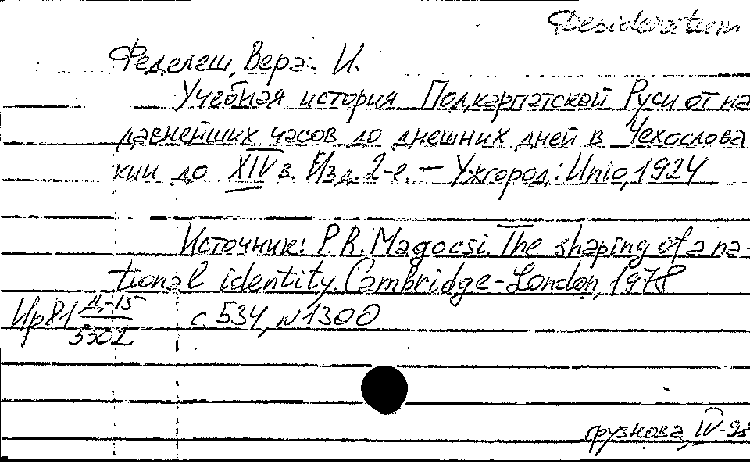 Desideratum
Феделеш, Вера И.
Учебная история Подкарпатской Руси от на
давнейших часов до днешних дней в Чехослова
кии до XIV в. Изд. 2-е. — Ужгород: Unio, 1924
Источник: P.R. Magocsi. The shaping of a na-
tional identity. Cambridge-London, 1978
Ир81 Д-15 с. 534, N1300
5502
грузнова, IV-95